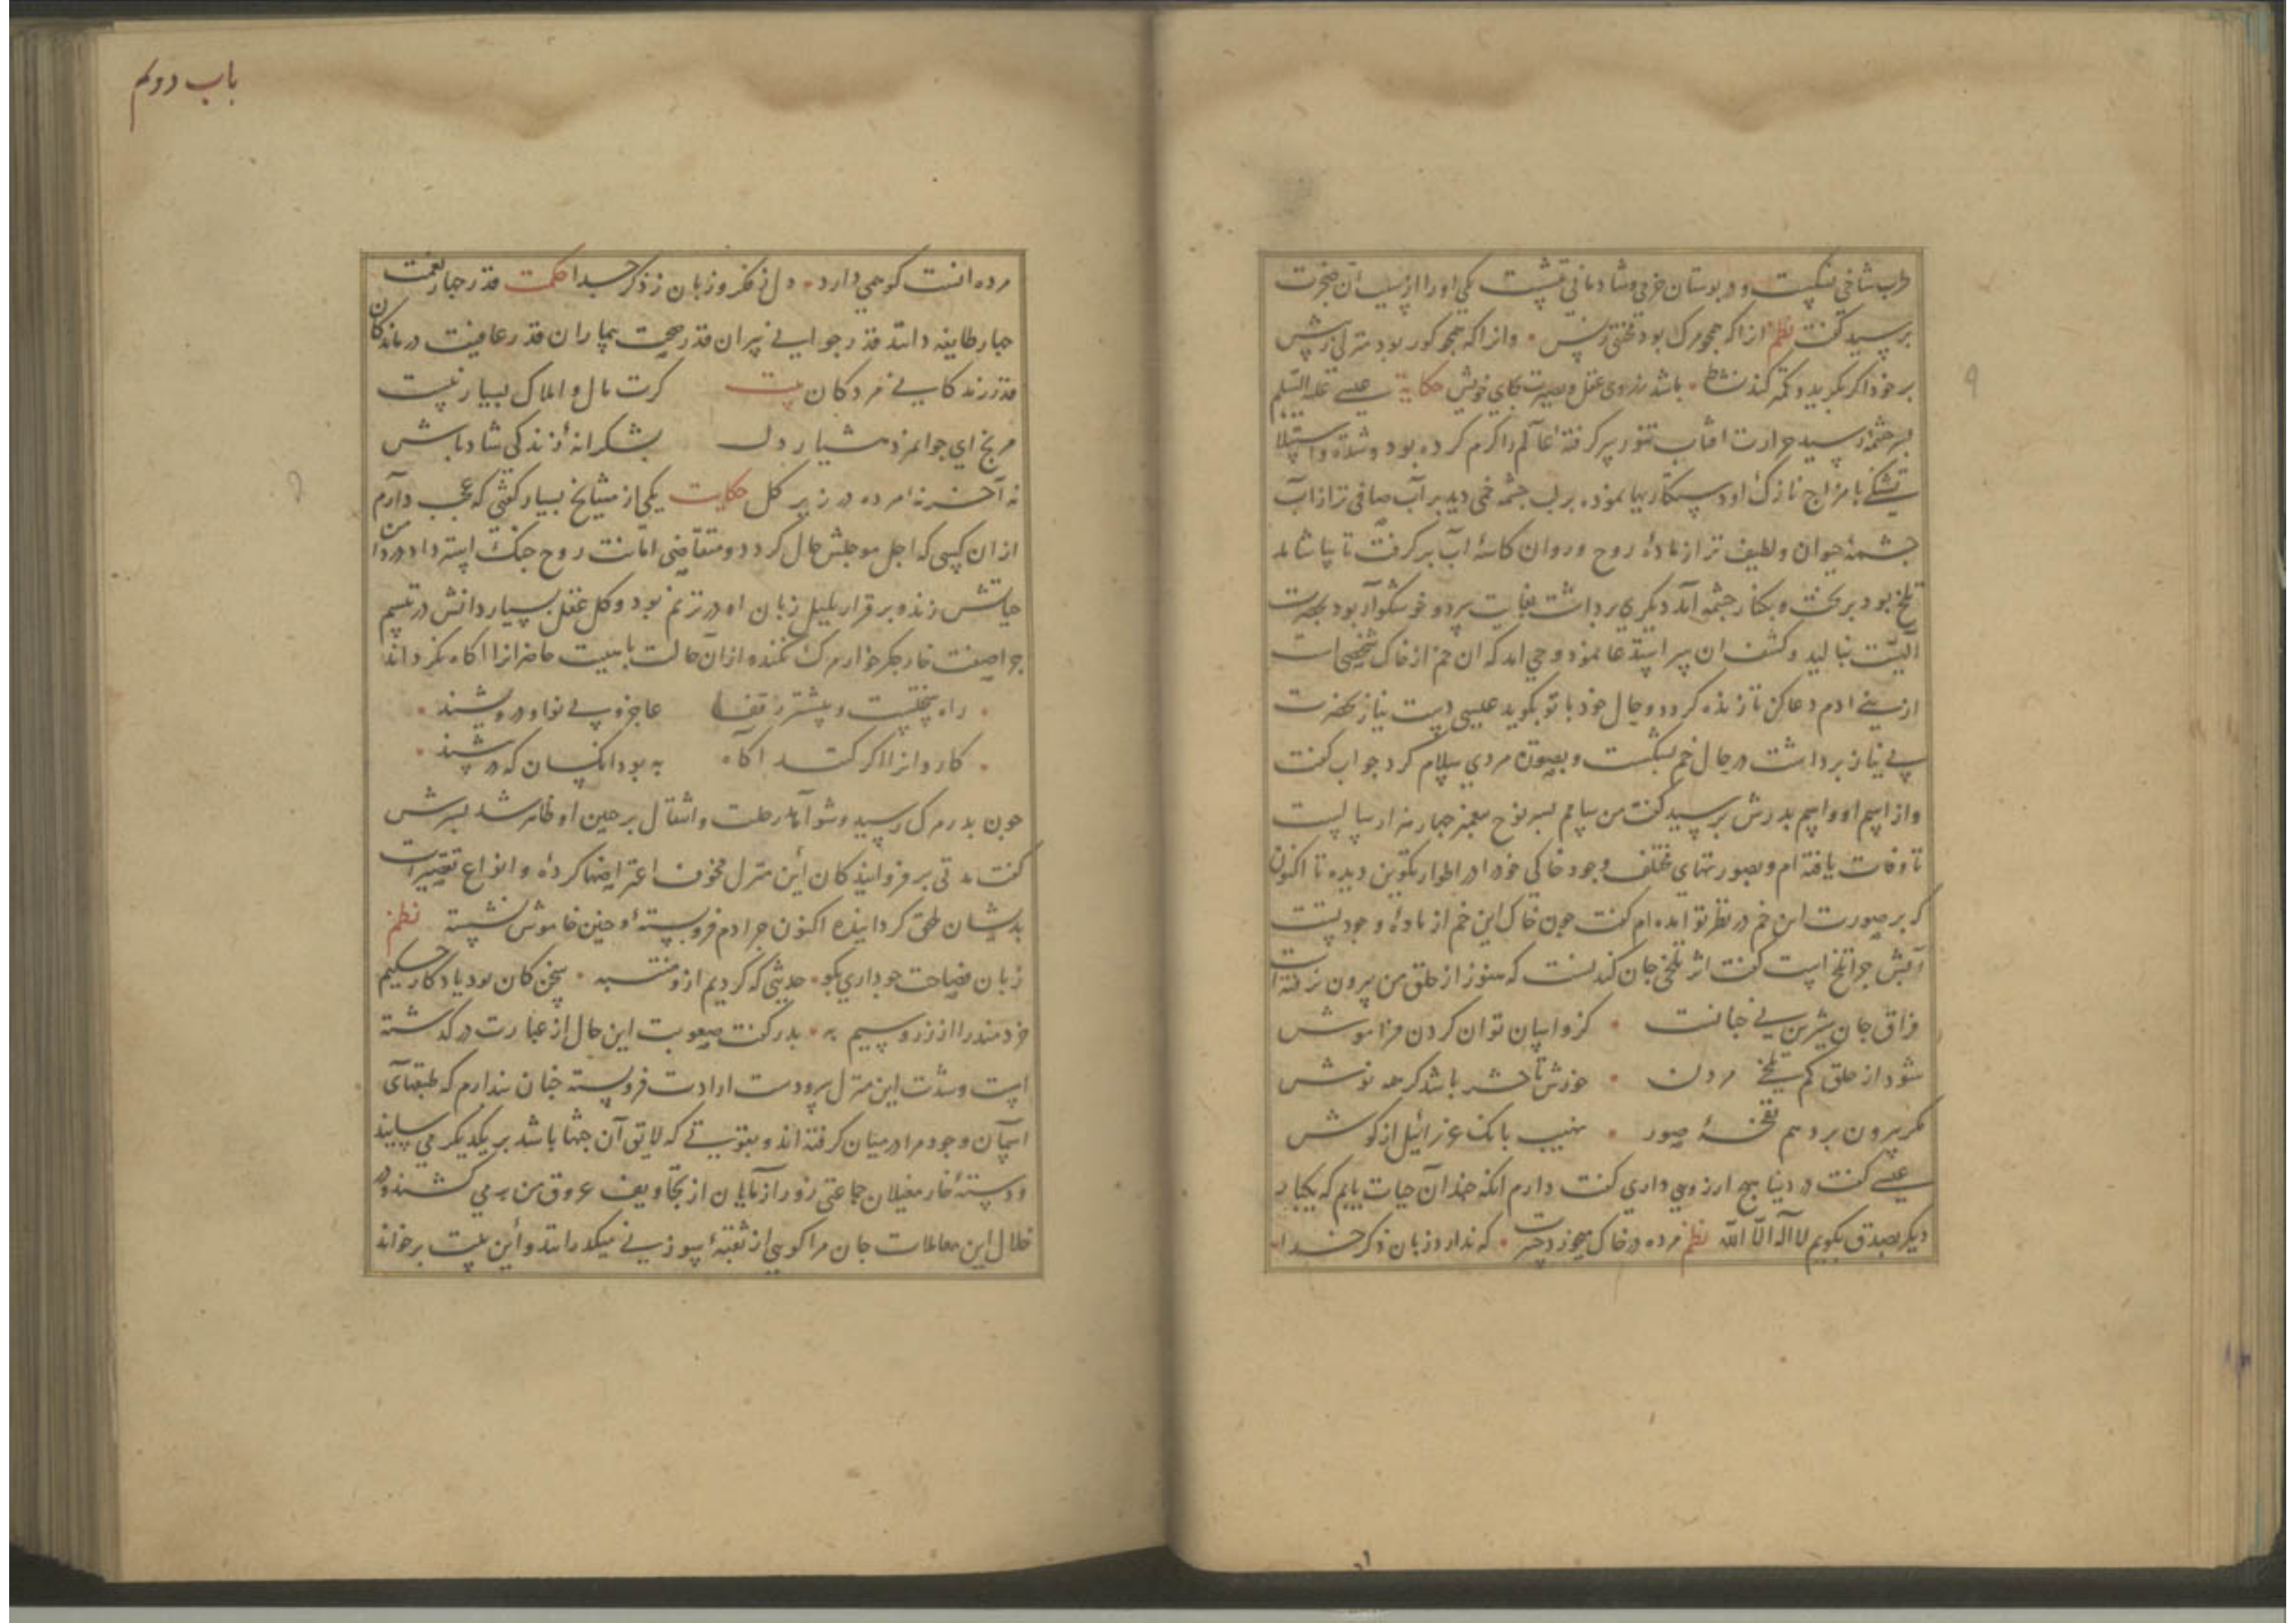 باب دوم
طرب شاخی نشکست و در بوستان خرمی و شادمانی ننشست یکی او را از سبب آن ضجرت
برسید کفت نظم از آنکه همجو مرک بود محنتی زبس وانرا که همجو کور بود منزلی زبیش
بر خود اکر بکرید و کمتر کند نشاط باشد ز روی عقل و بصیرت بجای خویش حکایة عیسی علیه السلم
بسر جشمه رسید حرارت افتاب تنور بر کرفته اعالم را کرم کرده بود و شدة و استیلا
تشنکی با مزاج نازک او دستکاریها نموده بر لب جشمه خمی دید بر آب صافی تر از آب
جشمهٔ حیوان و لطیف تر از مادهٔ روح و روان کاسهٔ اب بر کرفت تا بیاشامد
تلخ بود بریخت و بکنار جشمه آمد دیکری برداشت بغایت سرد و خوشکوار بود بحضرت
الهیت بنالید و کشف ان سر استدعا نمود وحی امد که ان خم از خاک شخصی است
از بنی ادم دعا کن تا زنده کردد و حال خود با تو بکوید عیسی دست نیاز بحضرت
بی نیاز برداشت در حال خم بشکست و بصورة مردی سلام کرد جواب کفت
و از اسم او و اسم بدرش برسید کفت من سامم بسر نوح بیغمبر جهار هزار سالست
تا وفات یافته ام و بصورتهای مختلف وجود خاکی خود را در اطوار تکوین دیده تا اکنون
که بر صورت این خم در نظر تو امده ام کفت جون خاک این خم از مادهٔ وجود تست
آبش جرا تلخ است کفت اثر تلخی جان کندنست که هنوز از حلق من بیرون نرفته است
فراق جان شیرین بی جانست کزو اسان توان کردن فراموش
شود از حلق کم تلخی مردن خورش تا حشر باشد کر همه نوش
مکر بیرون برد هم نفخهٔ صور نهیب بانک عزرائیل از کوش
عیسی کفت در دنیا هیج ارزویی داری کفت دارم انکه جندان حیات یابم که یکبار
دیکر بصدق بکویم لا اله الا الله نظم مرده در خاک هیجوز دحسرت که ندارد زبان ذکر خدا
مرده انست کو همی دارد دل ز فکر و زبان ز ذکر جدا حکمت قدر جهار نعمت
جهار طایفه دانند قدر جوانی بیران قدر صحت بیماران قدر عافیت درماندکان
قدر زندکانی مردکان بیت کرت مال و املاک بسیار نیست
مرنج ای جوانمرد هشیار دل بشکرانهٔ زندکی شاد باش
نه آخر نهٔ مرده در زیر کل حکایت یکی از مشایخ بسیار کفتی که عجب دارم
از ان کسی که اجل موجلش حال کردد و متقاضی امانت روح جنک استرداد در دامن
حیاتش زند و بر قرار بلبل زبان او در ترنم بود و کل عقل بسیار دانش در تبسم
جرا صفت خار جکرخوار مرک نکند و از ان حالت با هیبت حاضرانرا اکاه نکرداند
راه سختست و بیشتر ز قفا عاجز و بی نوا و درویشند
کاروانرا اکر کند اکاه به بود انکسان که در بیشند
جون بدر مرک رسید و شواهد رحلت و انتقال بر جبین او ظاهر شد بسرش
کفت مدتی بر فروایندکان این منزل مخوف اعتراضها کردهٔ و انواع تقصیرات
بدیشان ملحق کردانیده اکنون جرا دم فروبستهٔ و جنین خاموش نشسته نظم
زبان فصاحت جو داری بکو حدیثی که کردیم ازو منتبه سخن کان بود یادکار حکیم
خردمند را از زر و سیم به بدر کفت صعوبت این حال از عبارت در کذشته
است و شدت این منزل بر ودست ارادت فروبسته جنان بندارم که طبقهای
اسمان وجود مرا در میان کرفته اند و بقوتی که لایق آن جثها باشد بر یکدیکر می سایند
و دستهٔ خار مغیلان جماعتی زورآزمایان از تجاویف عروق من بر می کشند و در
خلال این معاملات جان مرا کویی از ثقبهٔ سوزنی میکذرانند و این بیت برخواند